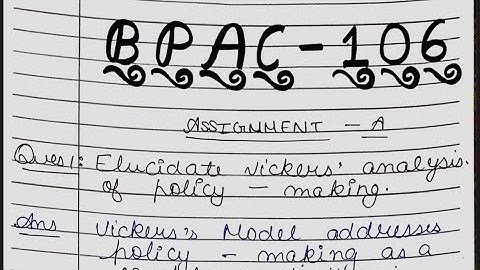 BPAC-106
ASSIGNMENT - A
Ques1: Elucidate Vickers' analysis.
of policy - making.
Ans Vickers's Model addresses
policy - making as a